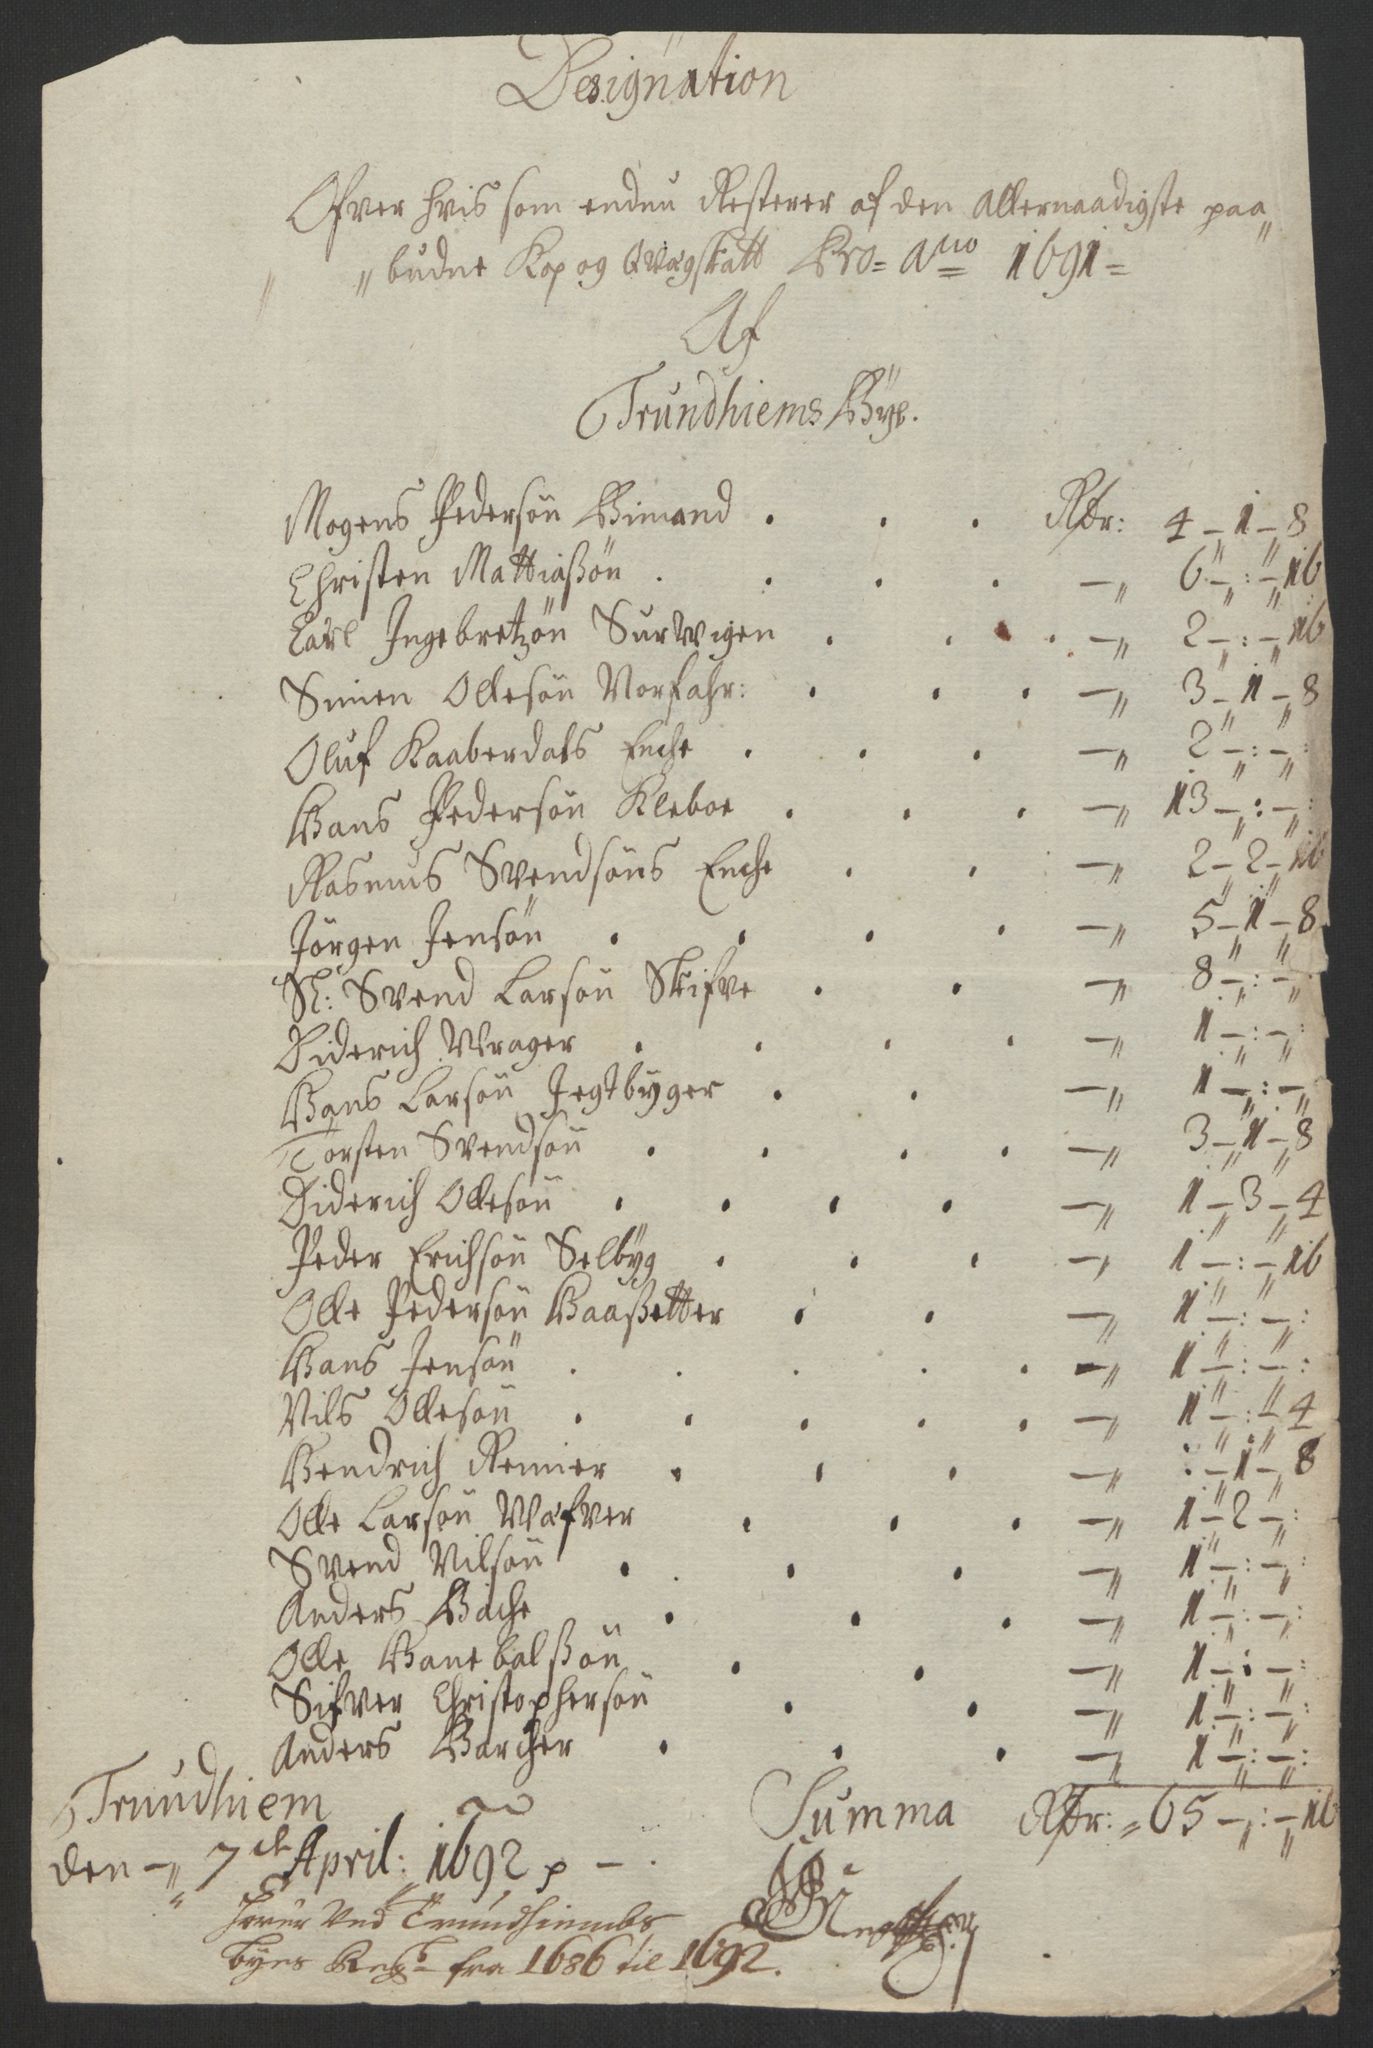 Designation
Ofver hvis som endnu Resterer af den allernaadigste paa„
„budne Kop og Qvægskatt Pro= Ano 1691=
Af
Trundhiems Bye.
Mogens Pedersøn Bimand . . . Rdr: 4 –„ 1 –„ 8
Christen Mattiasßøn . . . . –„ 6 –„ : –„ 16
Carl Ingebretzøn Surwigen . . . –„ 2 –„ : –„ 16
Simen Ollesøn Morfahr: . . . –„ 3 –„ 1 –„ 8
Oluf Kaaberdals Enche . . . –„ 2 –„ : –„ :
Hans Pedersøn Kleboe . . . –„ 13 –„ : –„ :
Rasmus Svendsøns Enche . . –„ 2 –„ 2 –„ 16
Jørgen Jensøn . . . . –„ 5 –„ 1 –„ 8
Sl: Svend Larsøn Skifve . . –„ 8 –„ : –„ :
Diderich Wrager . . . . –„ 1 –„ : –„ :
Hans Larsøn Jegtbyger . . –„ 1 –„ : –„ :
Torsten Svendsøn . . . . –„ 3 –„ 1 –„ 8
Diderich Ollesøn . . . . –„ 1 –„ 3 –„ 4
Peder Erichsøn Selbyg . . . –„ 1 –„ : –„ 16
Olle Pedersøn Haaßetter . . –„ 1 –„ : –„ :
Hans Jensøn . . . . . –„ 1 –„ : –„ :
Nils Ollesøn . . . . . –„ 1 –„ : –„ 4
Hendrich Remier . . . –„ : –„ 1 –„ 8
Olle Larsøn Wæfver . . . –„ 1 –„ 2 –„ :
Svend Nilsøn . . . . –„ 1 –„ : –„ :
Anders Bache . . . –„ 1 –„ : –„ :
Olle Hanebalßøn . . –„ 1 –„ : –„ :
Sifver Christophersøn . . –„ 1 –„ : –„ :
Anders Barcher . . . –„ 1 –„ : –„ :
Summa Rdr: „ 65 –„ : –„ 16
Trundhiem
den –„ 7de April: 1692
hører Ved Trundhiembs
byes Regsb fra 1686 til 1692.